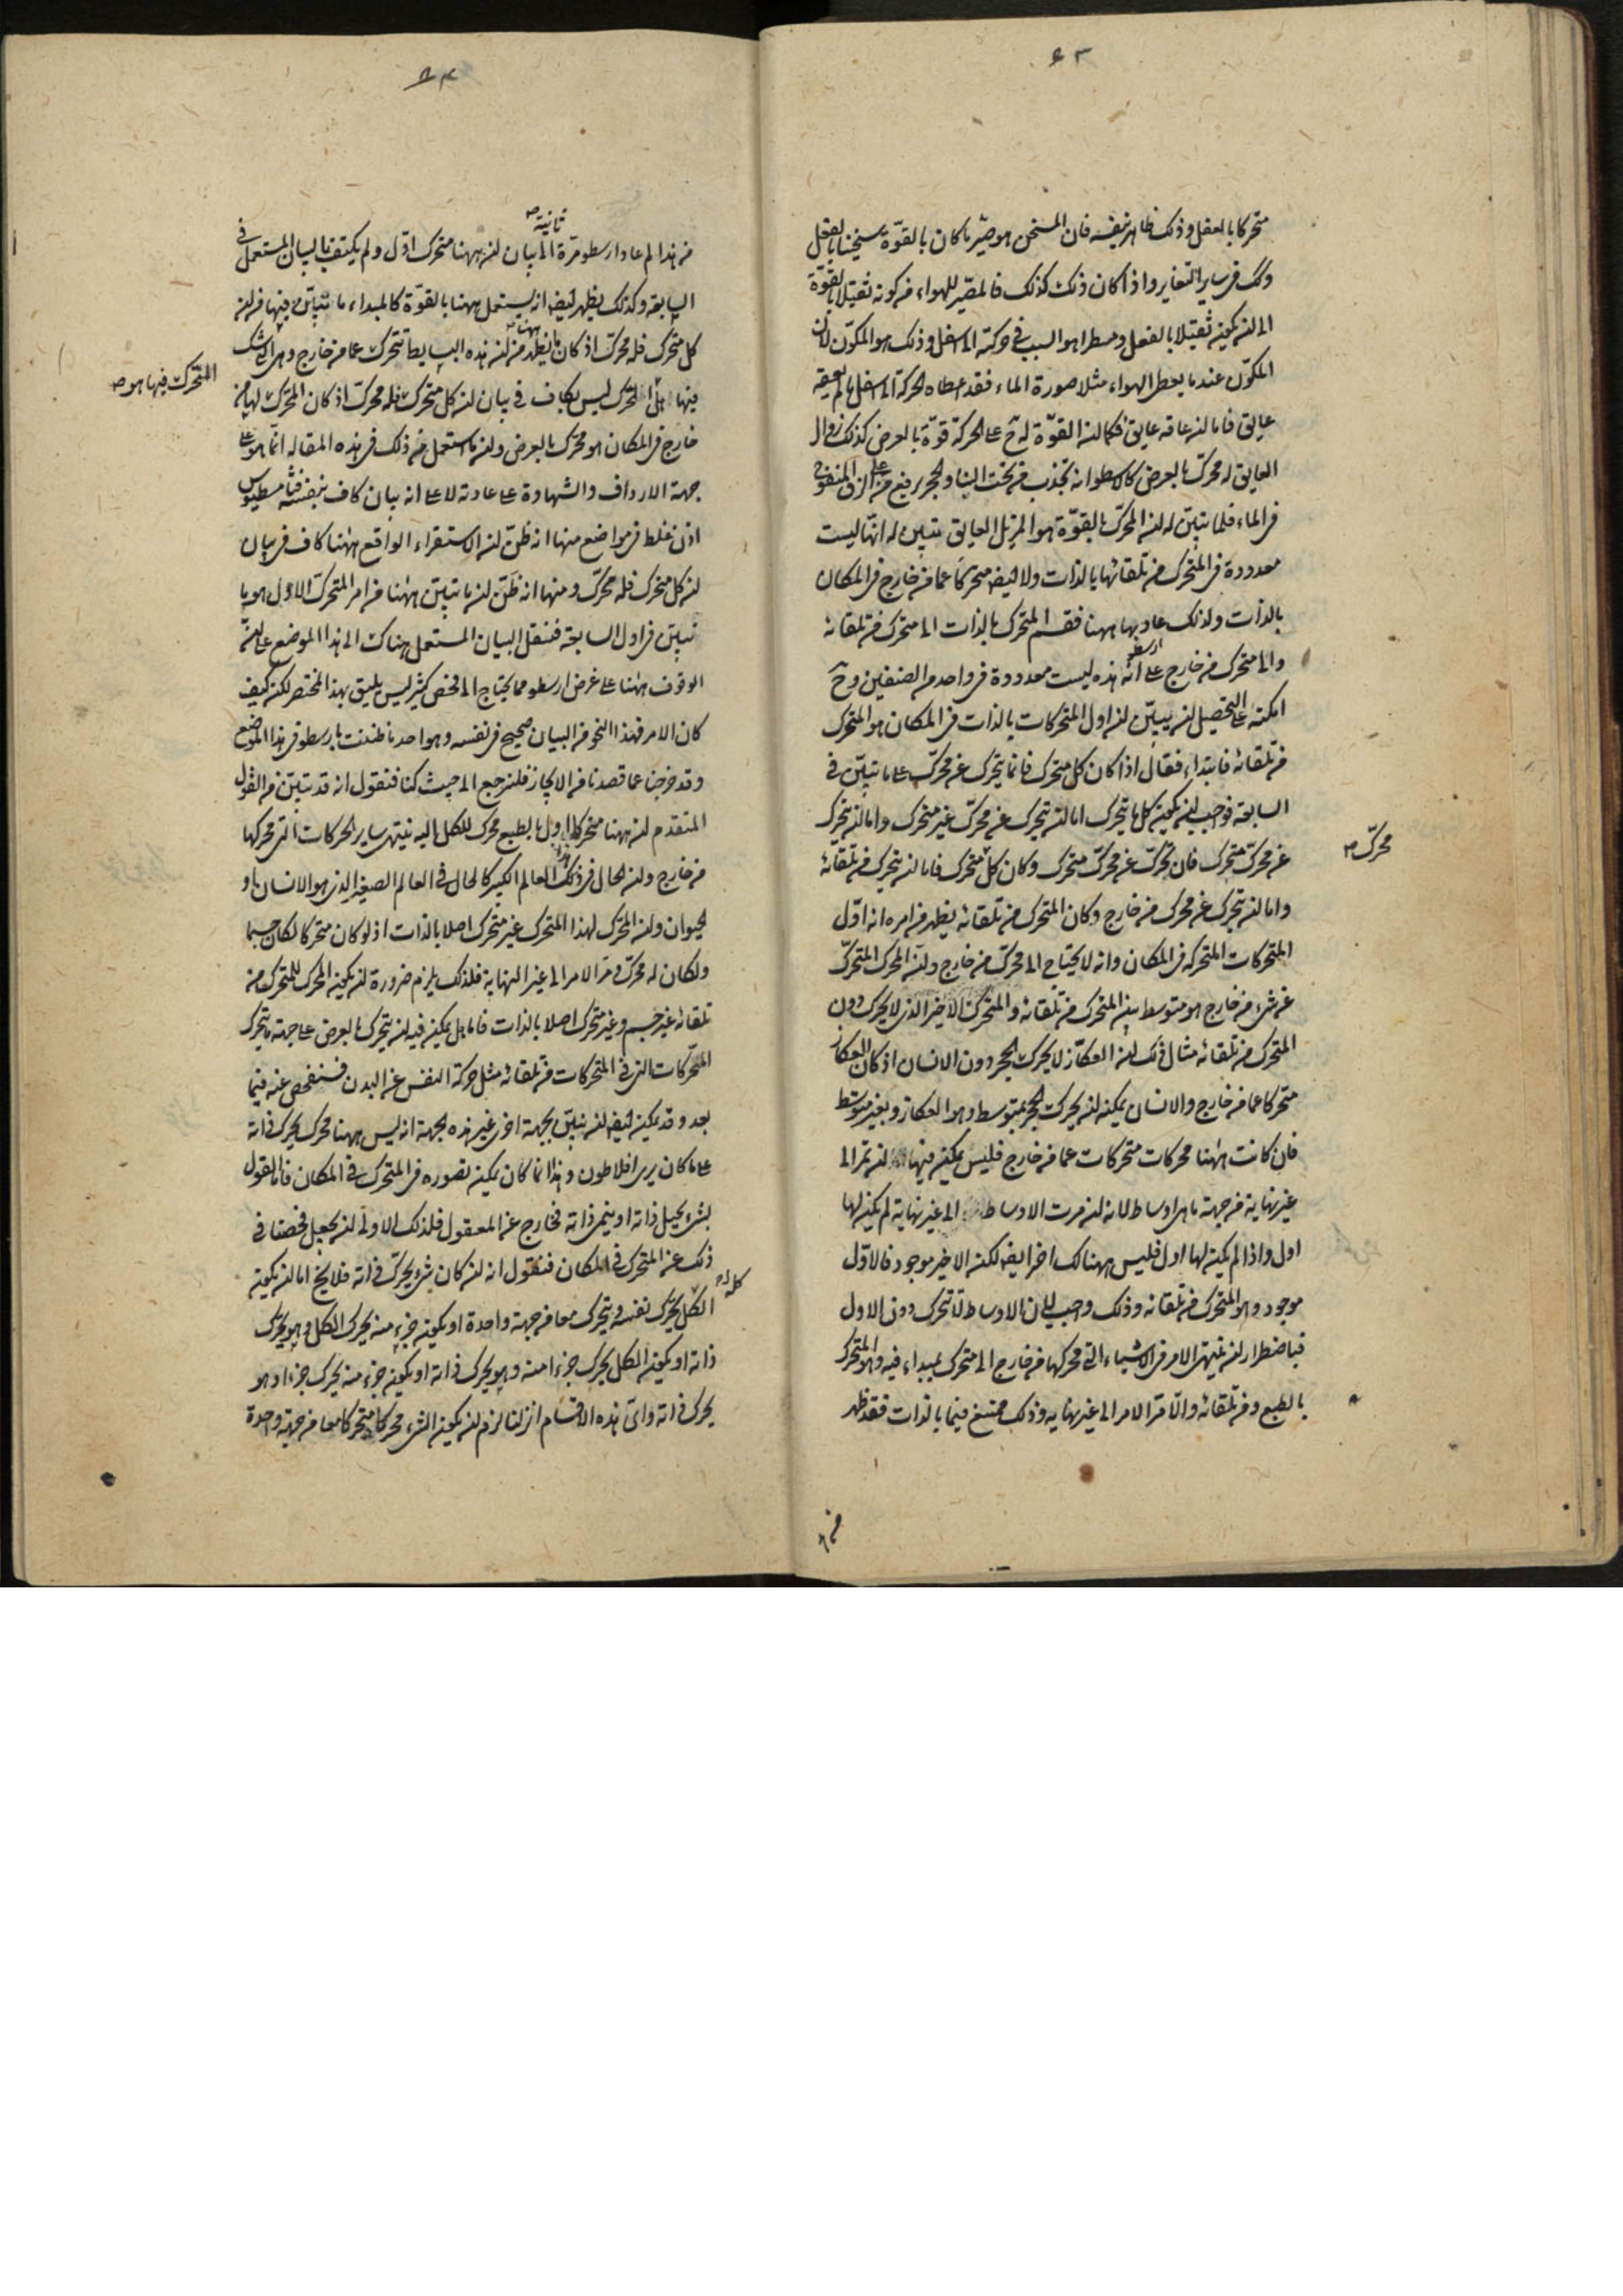 ٥٣
متحركا بالفعل وذلك ظاهر بنفسه فان المسخن هو مصير ما كان بالقوة سخينا بالفعل
وكك في ساير التغاير واذا كان ذلك كذلك فالمصير للهواء من كونه ثقيلا بالقوة
الى ان يكون ثقيلا بالفعل ومسطرا هو السبب في حركته الى اسفل وذلك هو المكون لان
المكون عندما يعطى الهواء مثلا صورة الماء فقد اعطاه الحركة الى اسفل ما لم يعقه
عايق فاما ان عاقه عايق فكما ان القوة له ح على الحركة قوة بالعرض كذلك زوال
العايق له محرك بالعرض كالاسطوانه تجذب من تحت البناء والحجر يرفع من على الزق المنفوخ
في الماء فلما تبين له ان المحرك بالقوة هو المزيل العايق تبين له انها ليست
معدودة في المتحرك من تلقائها بالذات ولا ايضا متحركا عما من خارج في المكان
بالذات ولذلك عاد بها ههنا فقسم المتحرك بالذات الى متحرك من تلقائه
والى متحرك من خارج على ان هذه ليست معدودة في واحد من الصنفين وح
ارسطو
امكنه على التحصيل ان يبين ان اول المتحركات بالذات في المكان هو المتحرك
من تلقائه فابتداء فقال اذا كان كل متحرك فانما يتحرك عن محرك على ما تبين في
السابعة فوجب ان يكون كل ما يتحرك اما ان يتحرك عن محرك غير متحرك واما ان يتحرك
عن محرك متحرك فان تحرك عن محرك متحرك وكان كل متحرك فاما ان يتحرك من تلقائه
محرك صح
واما ان يتحرك عن محرك من خارج وكان المتحرك من تلقائه يظهر من امره انه اول
المتحركات المتحركه في المكان وانه لا يحتاج الى محرك من خارج وان المحرك المتحرك
عن شيء من خارج هو متوسط بين المتحرك من تلقائه والمتحرك الاخير الذي لا يحرك دون
المتحرك من تلقائه مثال ذلك ان العكاز لا يحرك الحجر دون الانسان اذ كان العكاز
متحركا عما من خارج والانسان يمكنه ان يحرك الحجر بمتوسط وهو العكاز وبغير متوسط
فان كانت ههنا محركات متحركات عما من خارج فليس يمكن فيها ان تمر الى
غير نهاية من جهة ما هي اوساط لانه ان مرت الاوساط الى غير نهاية لم يكن لها
اول واذا لم يكن لها اول فليس ههنالك اخر ايضا لكن الاخير موجود فالاول
موجود وهو المتحرك من تلقائه وذلك واجب لان الاوساط لا تتحرك دون الاول
فباضطرار ان ينتهي الامر في الاشياء التي محركها من خارج الى متحرك بمبداء فيه وهو المتحرك
بالطبع ومن تلقائه والا مر الامر الى غير نهايه وذلك ممتنع فيما بالذات فقد ظهر
من
٥٤
ثانية صح
من هذا لم عاد ارسطو مرة الى بيان ان ههنا متحرك اول ولم يكتف بالبيان المستعمل في
السابعة وكذلك يظهر ايضا انه يستعمل ههنا بالقوة كالمبداء ما تبين فيها من ان
كل متحرك فله محرك اذ كان ما يظهر من ان هذه البسايط تتحرك عما من خارج وهي التي شك
ههنا صح
فيها هل المتحرك ليس بكاف في بيان ان كل متحرك فله محرك اذ كان المتحرك لها من
المتحرك فيها هو صح
خارج في المكان هو محرك بالعرض وان ما استعمل من ذلك في هذه المقاله انما هو على
جهة الارداف والشهادة على عادته لا على انه بيان كاف بنفسه فثامسطيوس
اذن غلط في مواضع منها انه ظن ان الاستقراء الواقع ههنا كاف في بيان
ان كل متحرك فله محرك ومنها انه ظن ان ما تبين ههنا من امر المتحرك الاول هو ما
تبين في اول السابعة فنقل البيان المستعمل هناك الى هذا الموضع على ان
الوقوف ههنا على غرض ارسطو مما يحتاج الى فحص كثير ليس يليق بهذا المختصر لكن كيف
كان الامر فهذا النحو من البيان صحيح في نفسه وهو احد ما ظننت بارسطو في هذا الموضع
وقد خرجنا عما قصدنا من الايجاز فلنرجع الى حيث كنا فنقول انه قد تبين من القول
المتقدم ان ههنا متحركا اول بالطبع محرك للكل اليه ينتهي ساير الحركات التي محركها
من خارج وان الحال في ذلك في العالم الكبير كالحال في العالم الصغير الذي هو الانسان او
الحيوان وان المحرك لهذا المتحرك غير متحرك اصلا بالذات اذ لو كان متحركا لكان جسما
ولكان له محرك ومر الامر الى غير النهاية فلذلك يلزم ضرورة ان يكون المحرك للمتحرك من
تلقائه غير جسم وغير متحرك اصلا بالذات فاما هل يمكن فيه ان يتحرك بالعرض على جهة ما يتحرك
المحركات التي في المتحركات من تلقائه مثل حركة النفس عن البدن فسنفحص عنه فيما
بعد وقد يمكن ايضا ان نبين بجهة اخرى غير هذه الجهة انه ليس ههنا محرك يحرك ذاته
على ما كان يرى افلاطون وهذا انما كان يمكن تصوره في المتحرك في المكان فاما القول
بشيء يحيل ذاته او ينمي ذاته فخارج عن المعقول فلذلك الاولى ان نجعل فحصنا في
ذلك عن المتحرك في المكان فنقول انه ان كان شيء يحرك ذاته فلا يخ اما ان يكون
الكل يحرك نفسه ويتحرك معا من جهة واحدة او يكون جزء منه يحرك الكل وهو يحرك
كله صح
ذاته او يكون الكل يحرك جزءا منه وهو يحرك ذاته او يكون جزء منه يحرك جزءا وهو
يحرك ذاته واي هذه الاقسام انزلنا لزم ان يكون الشيء محركا متحركا معا من جهة واحدة